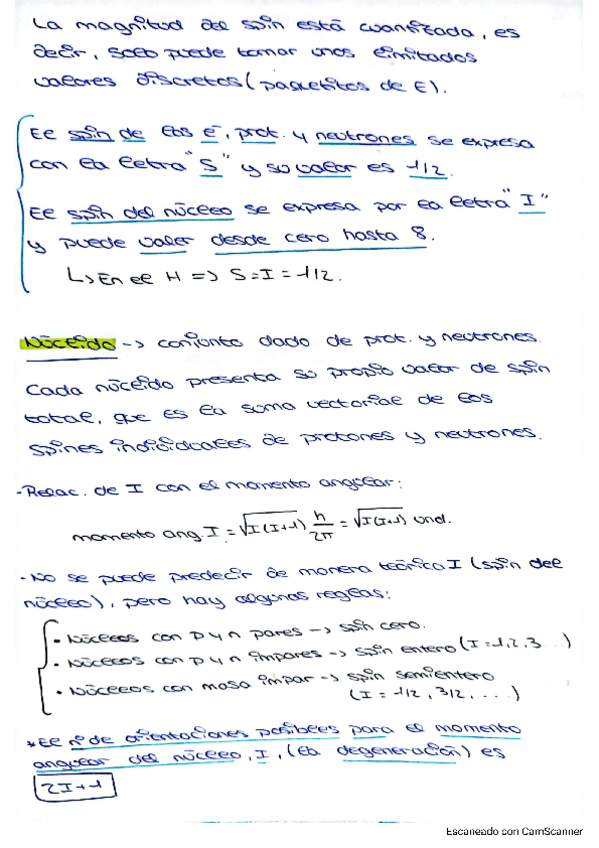 La magnitud del spin está cuantizada, es
decir, solo puede tomar unos limitados
valores discretos (paquetitos de E).
El spin de los e⁻, prot. y neutrones se expresa
con la letra "S" y su valor es 1/2.
El spin del núcleo se expresa por la letra "I"
y puede valer desde cero hasta 8.
↳ En el H => S=I=1/2.
Núclido -> conjunto dado de prot. y neutrones.
Cada núclido presenta su propio valor de spin
total, que es la suma vectorial de los
spines individuales de protones y neutrones.
-Relac. de I con el momento angular:
momento ang. I = √I(I+1) h/2π = √I(I+1) und.
· No se puede predecir de manera teórica I (spin del
núcleo), pero hay algunas reglas:
· Núcleos con p y n pares -> spin cero.
· Núcleos con p y n impares -> spin entero (I=1,2,3...)
· Núcleos con masa impar -> spin semientero
(I = 1/2, 3/2, ...)
*El nº de orientaciones posibles para el momento
angular del núcleo, I, (la degeneración) es
2I+1
Escaneado con CamScanner